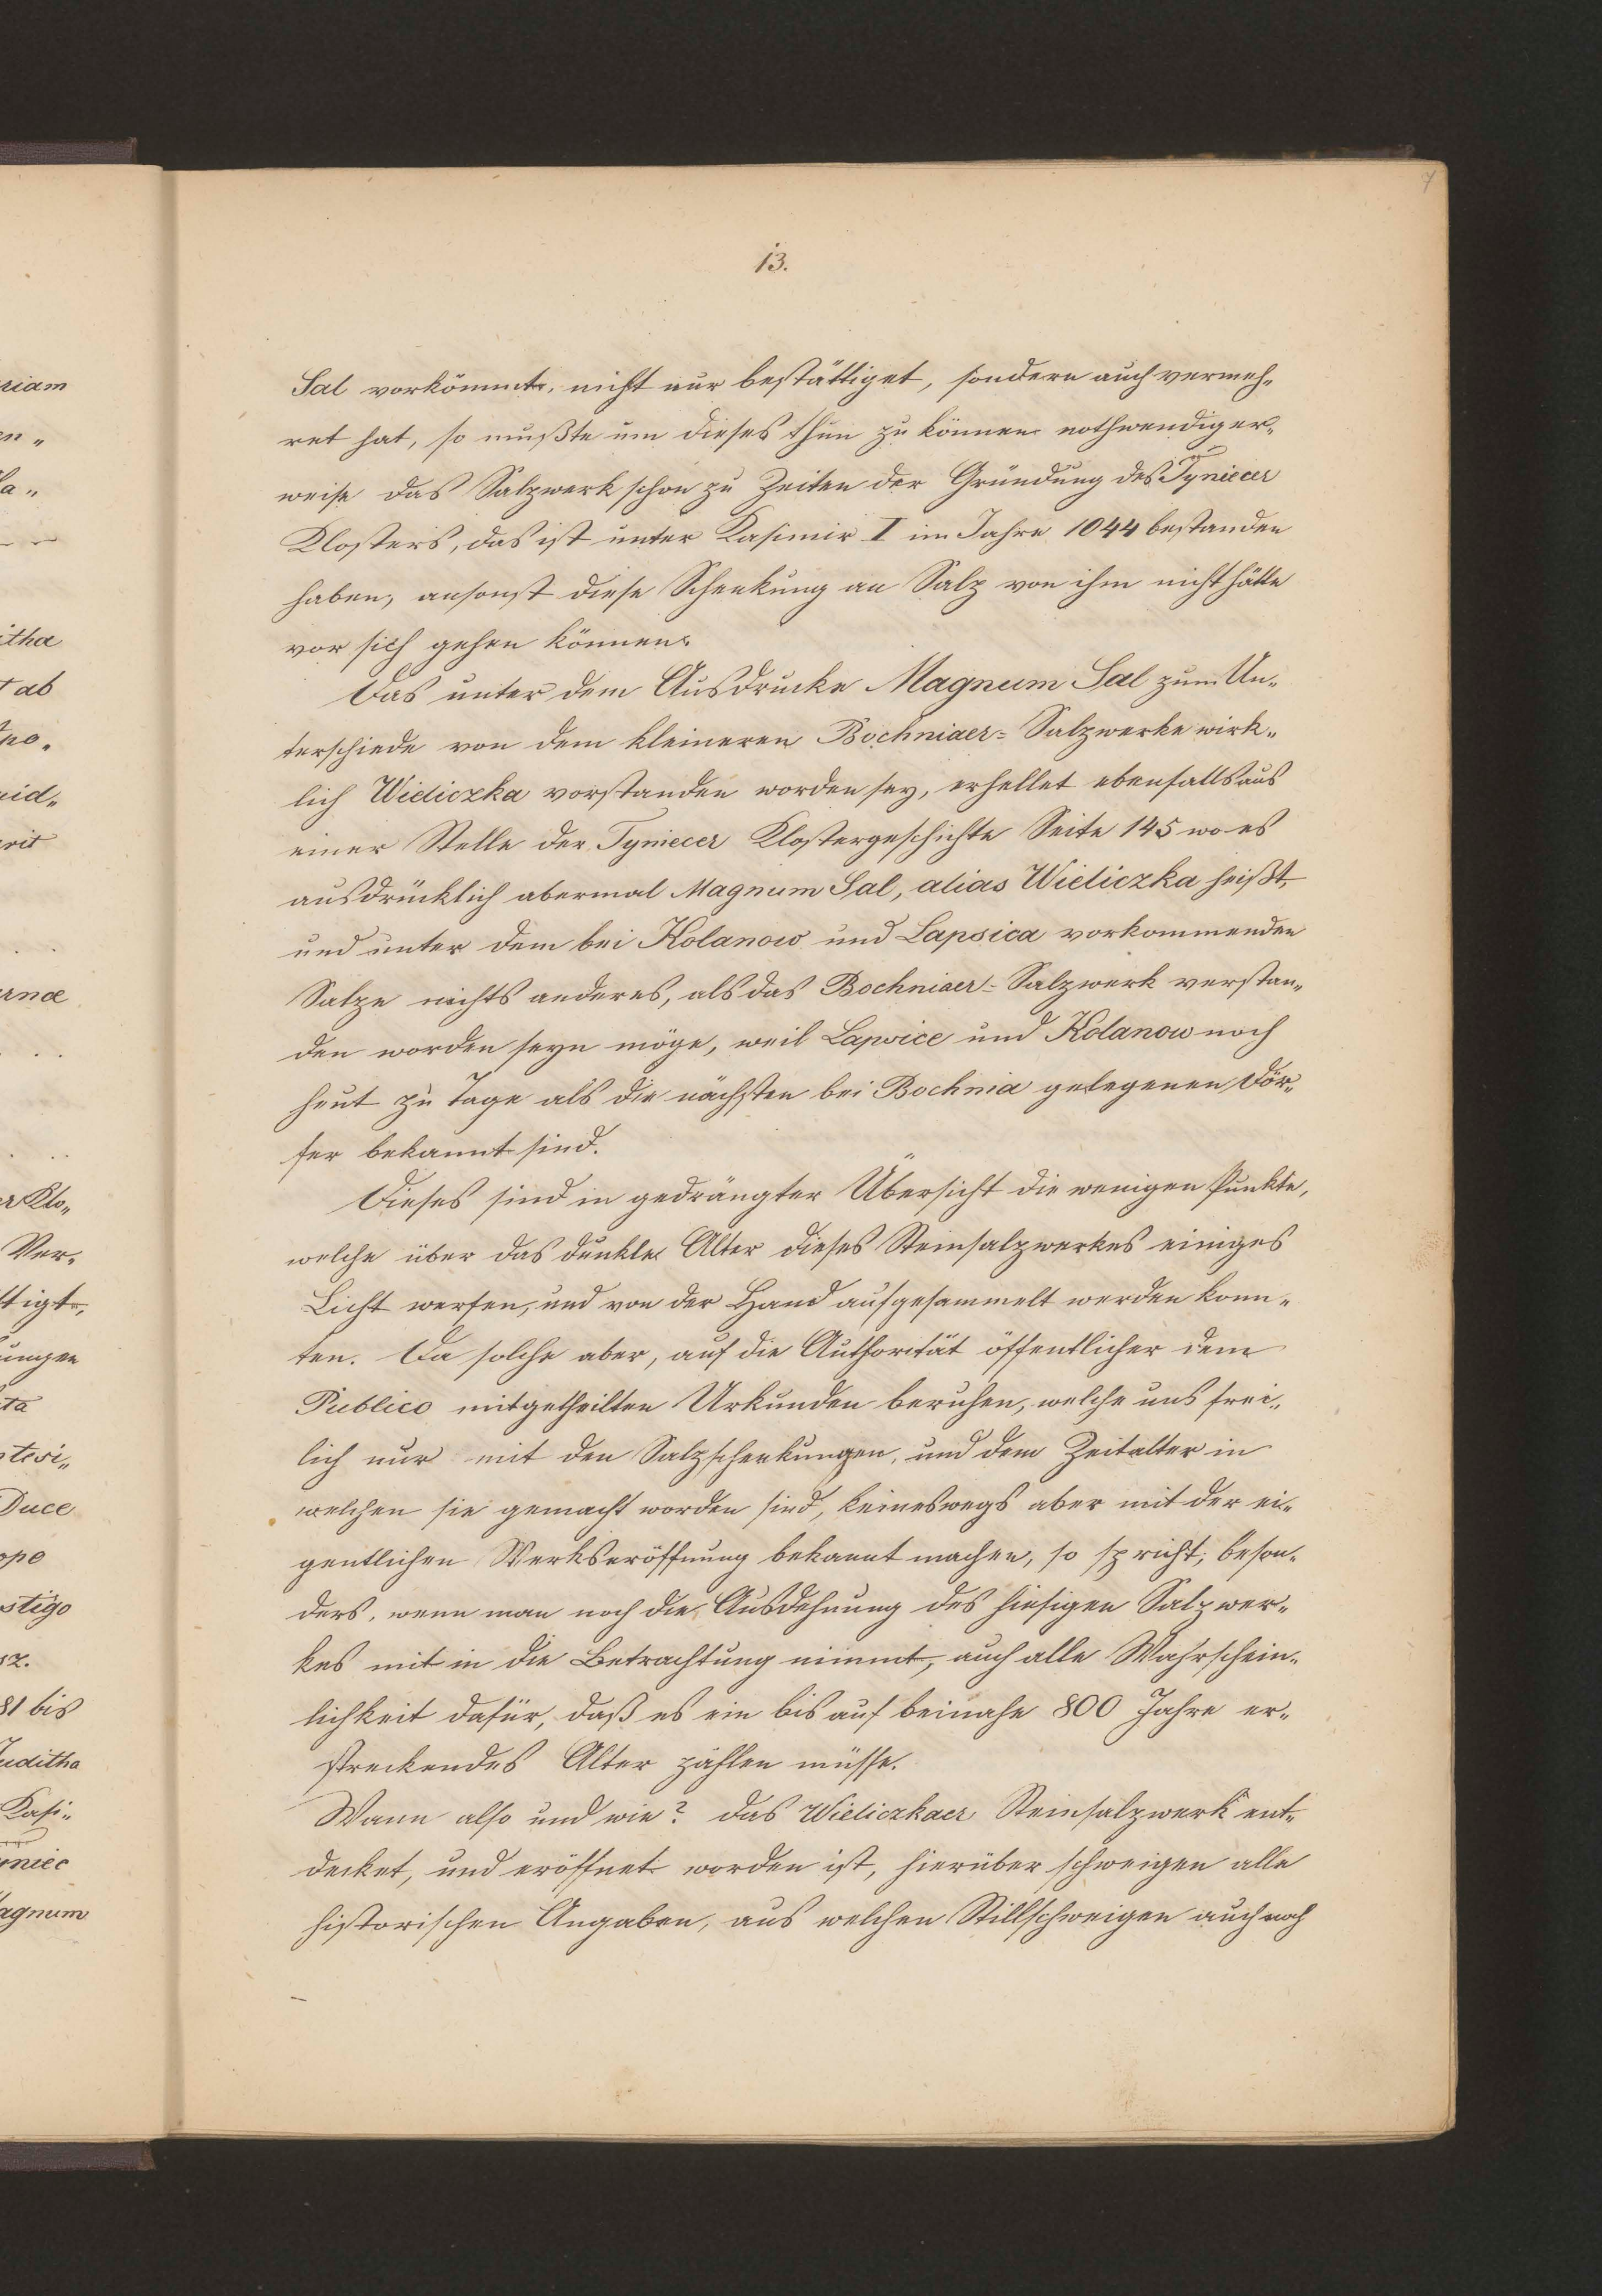 7
13.
Sal vorkömmt, nicht nur bestättiget, sondern auch vermeh„
ret hat, so mußte um dieses thun zu können nothwendiger„
weise das Salzwerk schon zu Zeiten der Gründung des Tyniecer
Klosters, das ist unter Kasimir I im Jahre 1044 bestanden
haben, ansonst diese Schenkung an Salz von ihm nicht hätte
vor sich gehen können.
Das unter dem Ausdrucke Magnum Sal zum Un„
terschiede von dem kleineren Bochniaer= Salzwerke wirk„
lich Wieliczka vorstanden worden sey, erhellet ebenfalls aus
einer Stelle der Tyniecer Klostergeschichte Seite 145 wo es
ausdrücklich abermal Magnum Sal, alias Wieliczka heißt,
und unter dem bei Kolanow und Lapsica vorkommenden
Salze nichts anderes, als das Bochniaer= Salzwerk verstan„
den worden seyn möge, weil Lapsice und Kolanow noch
heut zu Tage als die nächsten bei Bochnia gelegenen Dör„
fer bekannt sind.
Dieses sind in gedrängter Übersicht die wenigen Punkte,
welche über das dunkle Alter dieses Steinsalzwerkes einiges
Licht werfen, und von der Hand aufgesammelt werden konn„
ten. Da solche aber, auf die Authorität öffentlicher dem
Publico mitgetheilten Urkunden beruhen, welche uns frei„
lich nur mit den Salzschenkungen, und dem Zeitalter in
welchen sie gemacht worden sind, keineswegs aber mit der ei„
gentlichen Werkseröffnung bekannt machen, so spricht, beson„
ders, wenn man noch die Ausdehnung des hiesigen Salzwer„
kes mit in die Betrachtung nimmt, auch alle Wahrschein„
lichkeit dafür, daß es ein bis auf beinahe 800 Jahre er„
streckendes Alter zählen müsse.
Wann also und wie? das Wieliczkaer Steinsalzwerk ent„
decket, und eröffnet worden ist, hierüber schweigen alle
historischen Angaben, aus welchen Stillschweigen auch noch